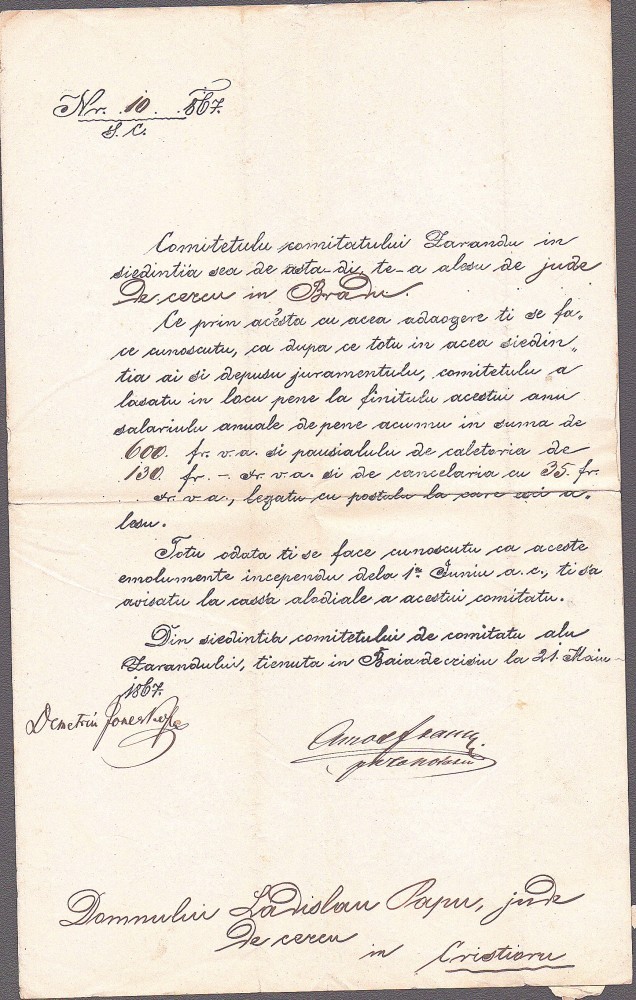 Nr. 10. 867.
S. C.
Comitetulu comitatului Zarandu in
siedintiia sea de asta-di, te-a alesu de jude
de cercu in Bradu.
Ce prin acésta cu acea adaogere ti se fa-
ce cunoscutu, ca dupa ce totu in acea siedin-
tia ai si depusu juramentulu, comitetulu a
lasatu in locu pene la finitulu acestui anu
salariulu anuale de pene acumu in suma de
600. fr. v. a. si pausialulu de caletoria de
130. fr. - xr. v. a. si de cancelaria cu 35. fr.
xr. v. a., legatu cu postulu la care esci a-
lesu.
Totu odata ti se face cunoscutu ca aceste
emolumente incependu dela 1a Juniu a. c., ti sa
avisatu la cassa alodiale a acestui comitatu.
Din siedintia comitetului de comitatu alu
Zarandului, tienuta in Baia de crisiu la 21. Maiu
1867.
Demetriu
Amos Francu
Domnului Ladislau Papu, jude
de cercu
in Cristioru